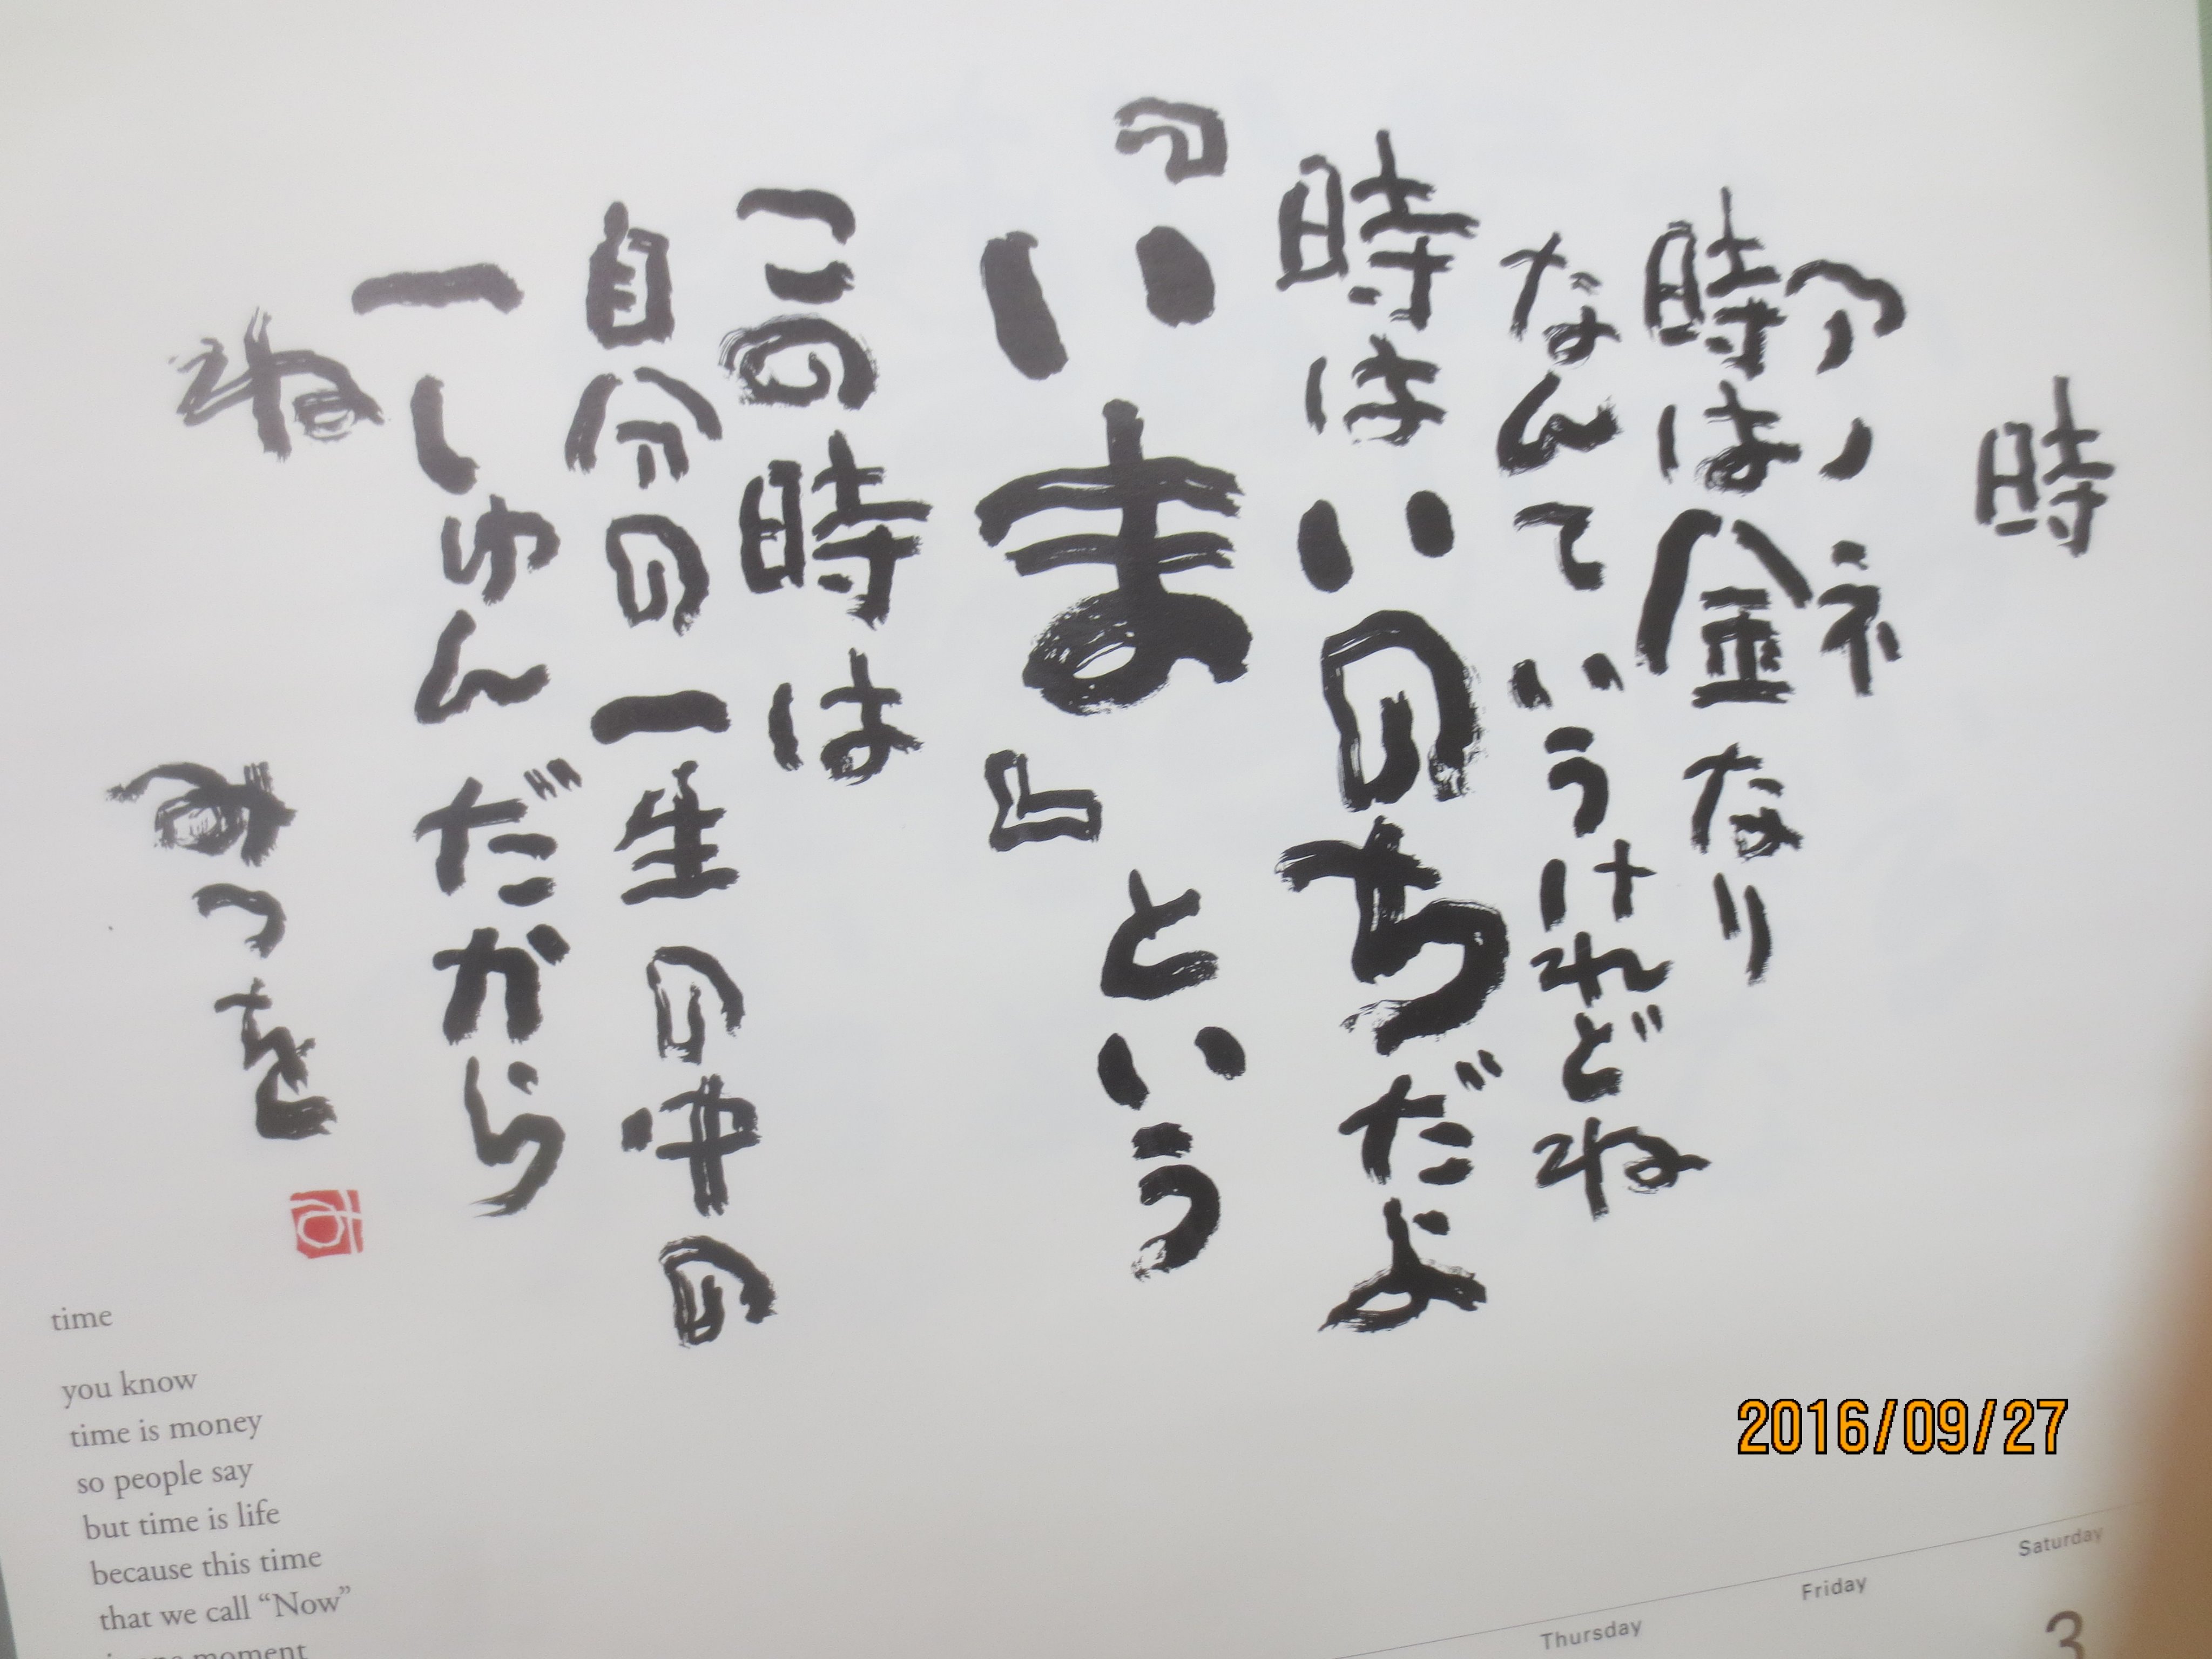 時
アノネ
時は金なり
なんていうけれどね
時はいのちだよ
『いま』という
この時は
自分の一生の中の
一しゅんだから
ね
みつを
み
time
you know
time is money
so people say
but time is life
because this time
that we call “Now”
moment
2016/09/27
Thursday
Friday
Saturday
3